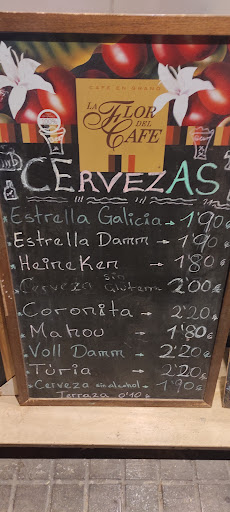 CAFÉ EN GRANO
LA
FLOR
DEL
CAFÉ
CERVEZAS
Estrella Galicia → 1'90
Estrella Damm → 1'90
Heineken → 1'80 €
Cerveza sin Gluten → 2'00 €
Coronita → 2'20
Mahou → 1'80 €
Voll Damm → 2'20 €
Túria → 2'20 €
Cerveza sin alcohol → 1'90 €
Terraza 0'10 €